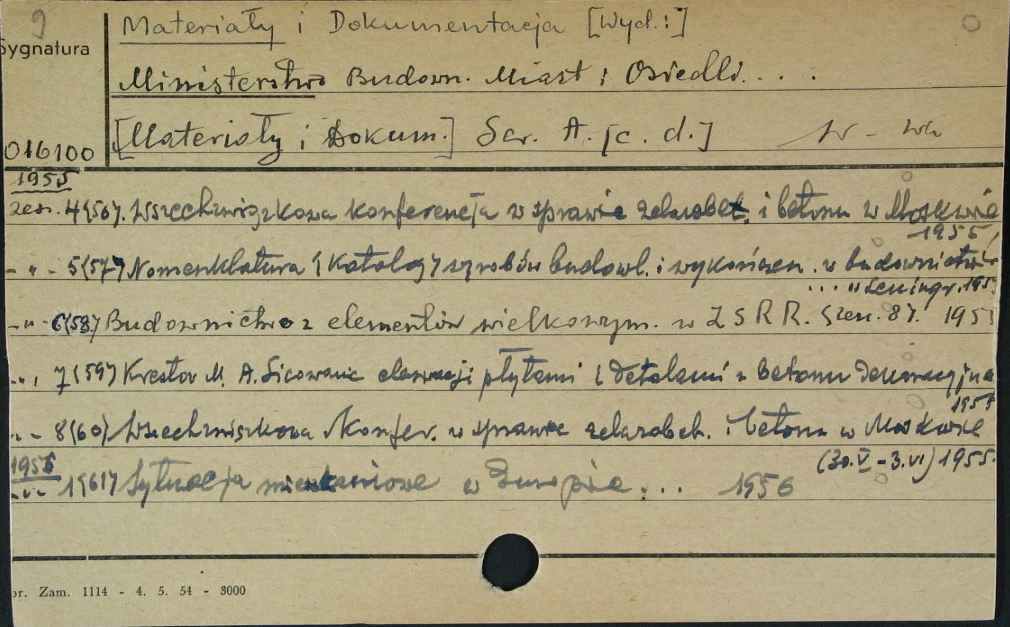 9 Materiały i Dokumentacja [Wyd.:]
Sygnatura
Ministerstwo Budown. Miast i Osiedli. . . .
016100 [Materiały i Dokum.] Ser. A. [c. d.]
1955
zesz. 4(56). Wszechzwiązkowa konferencja w sprawie żelazobet. i betonu w Moskwie
1955
- " - 5(57) Nomenklatura (Katalog) wyrobów budowl. i wykończen. w budownictwie
... w Leningr. 195
- " - 6(58) Budownictwo z elementów wielkowym. w ZSRR. (zesz. 8). 195
- " - 7(59) Krestov M. A. Licowanie elewacji płytami i detalami z betonu dekoracyjne
1955
- " - 8(60) Wszechzwiązkowa Konfer. w sprawie żelazobet. i betonu w Moskwie
(30.V - 3.VI) 1955.
1956
- " - 1(61) Sytuacja mieszkaniowa w Europie ... 1956
or. Zam. 1114 - 4. 5. 54 - 3000